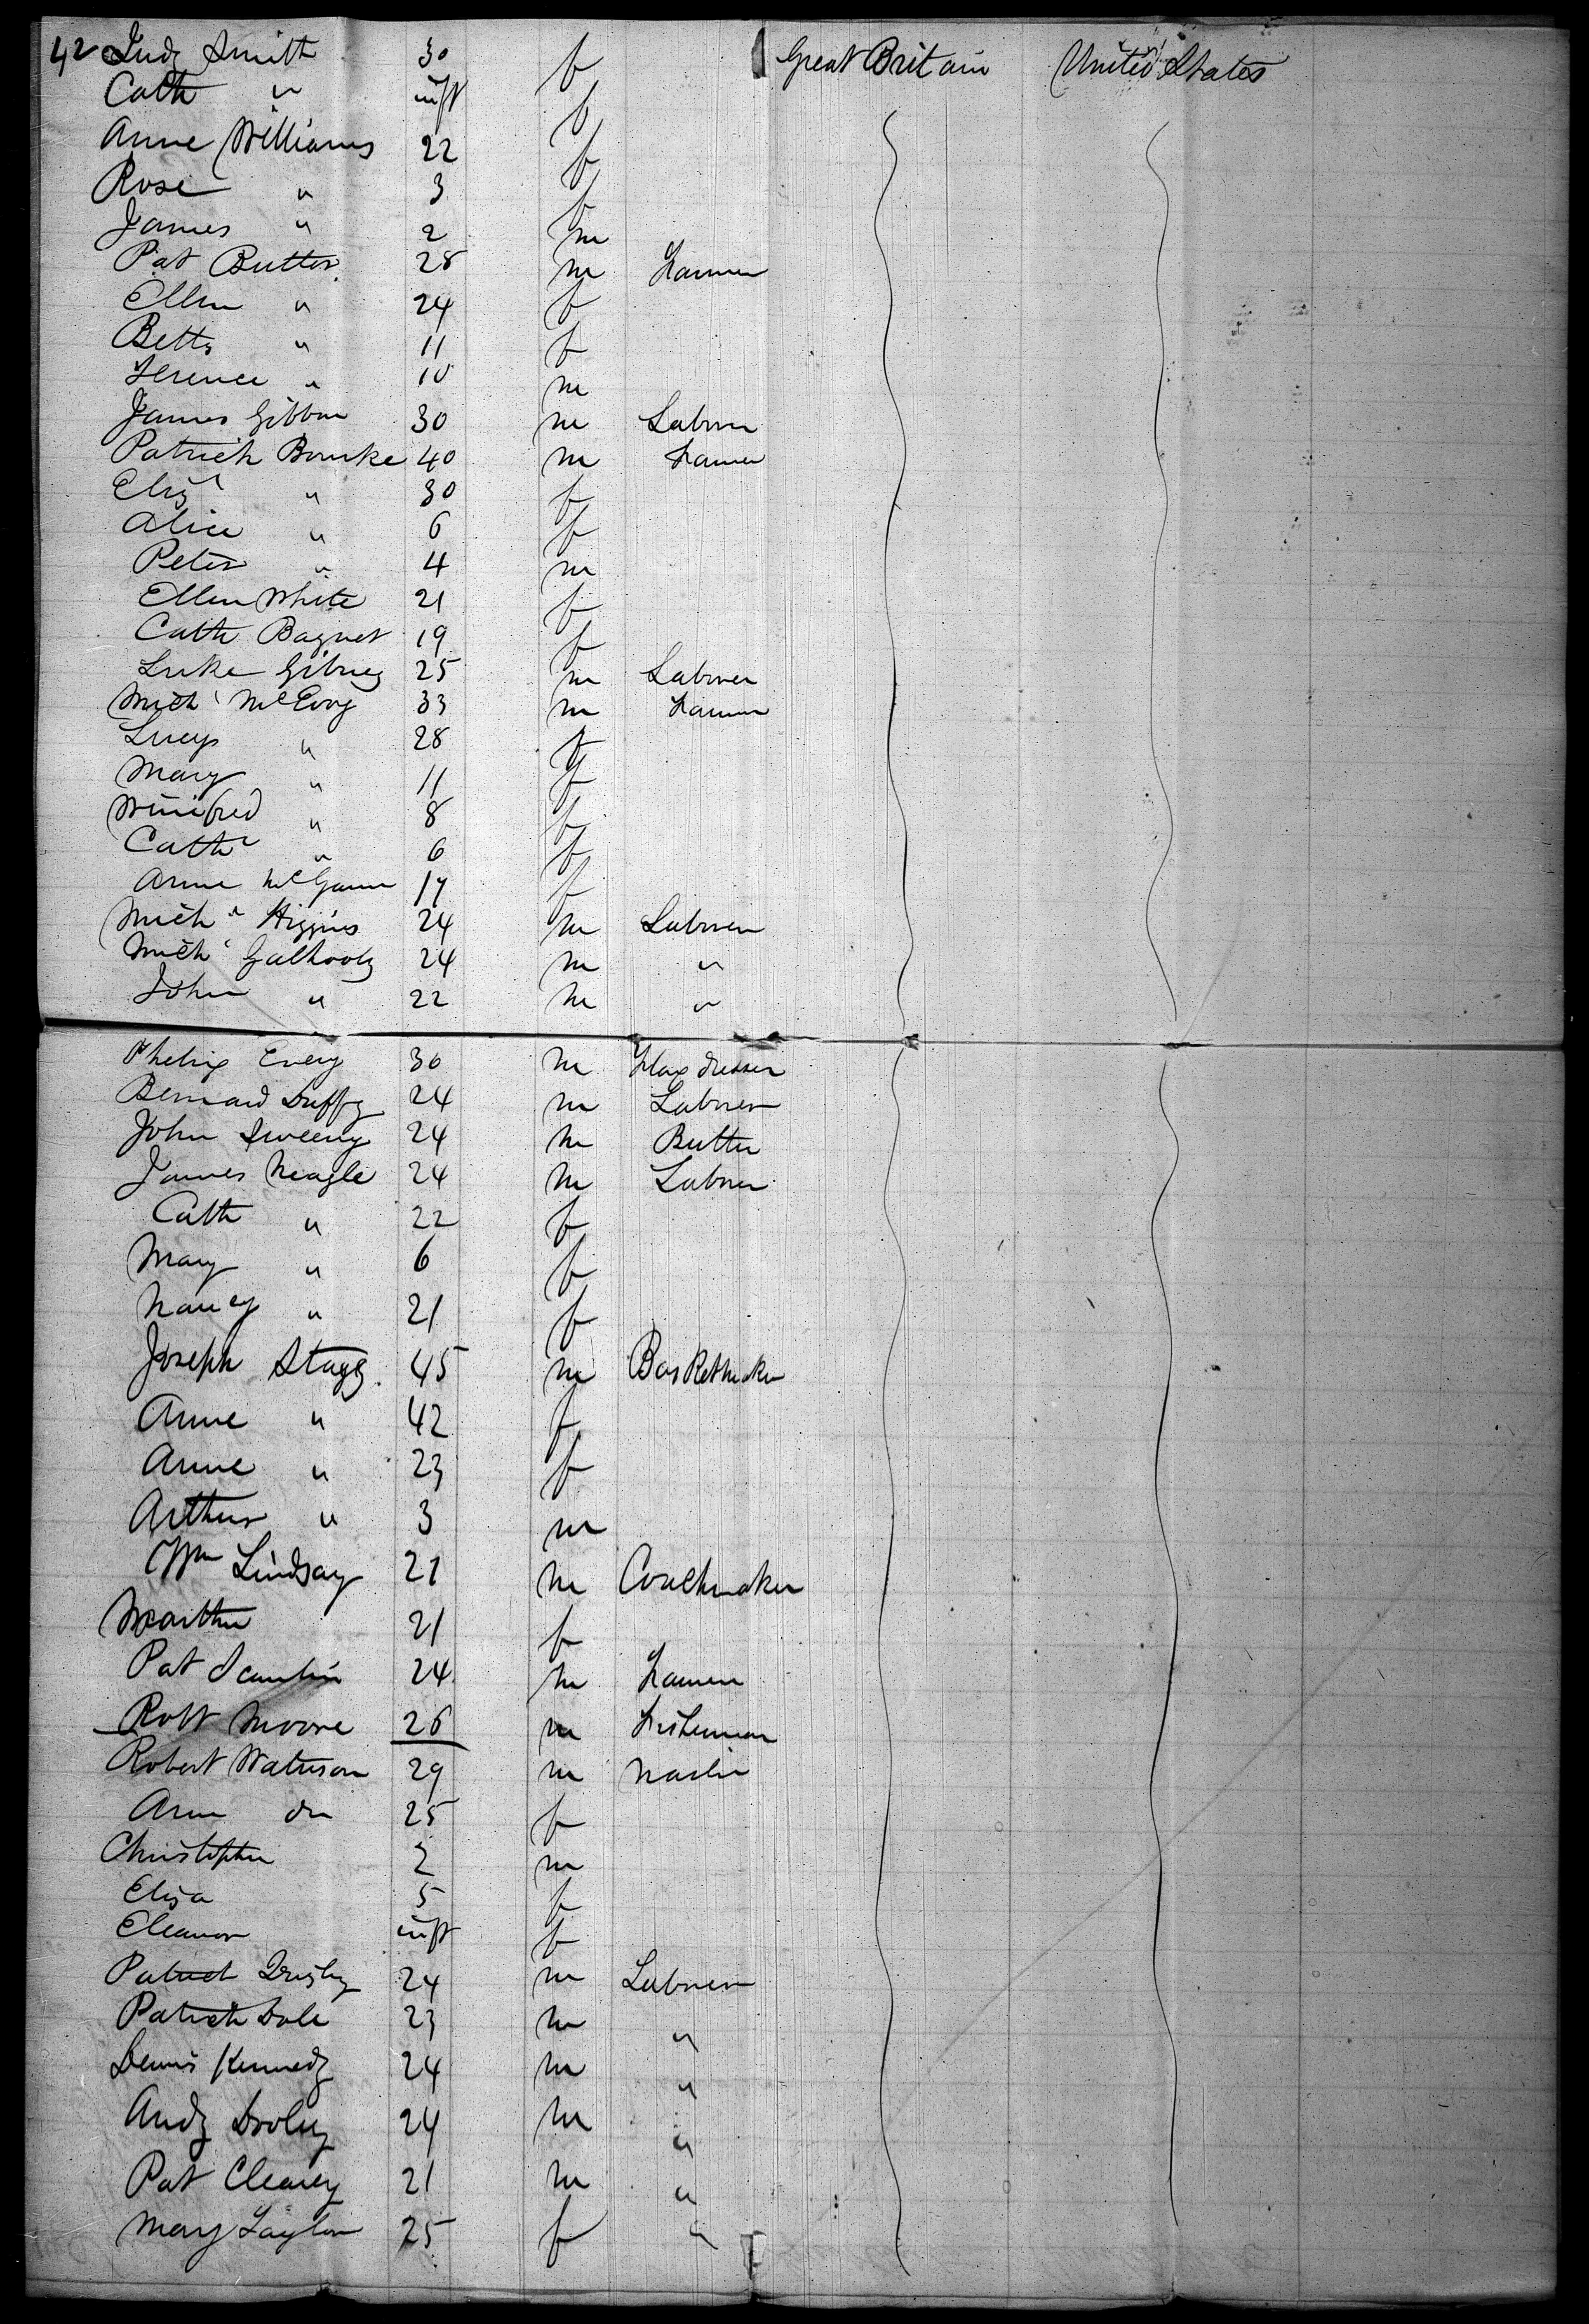 42 Judy Smith 30 f Great Britain United States
Cath " inft f
Anne Williams 22 f
Rose " 3 f
James " 2 m
Pat Butter 28 m Farmer
Ellen " 24 f
Betty " 11 f
Terence " 10 m
James Gibbon 30 m Laborer
Patrick Bourke 40 m Farmer
Eliz " 30 f
Alice " 6 f
Peter " 4 m
Ellen White 21 f
Cath Bagnet 19 f
Luke Gibney 25 m Laborer
Mich McEvoy 33 m Farmer
Lucy " 28 f
Mary " 11 f
Winifred " 8 f
Cath " 6 f
Anne McGann 17 f
Mich Higgins 24 m Laborer
Mich Galhooly 24 m "
John " 22 m "
Phelix Every 30 m Flax dresser
Bernard Duffy 24 m Laborer
John Sweeny 24 m Butler
James Neagle 24 m Laborer
Cath " 22 f
Mary " 6 f
Nancy " 21 f
Joseph Stagg 45 m Basketmaker
Anne " 42 f
Anne " 23 f
Arthur " 3 m
Wm Lindsay 21 m Coachmaker
Martha 21 f
Pat Scanlin 24 m Farmer
Robt Moore 26 m Fisherman
Robert Watterson 29 m
Ann do 25 f
Christopher 2 m
Eliza 5 f
Eleanor inft f
Patrick 24 m Laborer
Patrick Dole 23 m "
Dennis Kennedy 24 m "
Andy Dooley 24 m "
Pat Cleary 21 m "
Mary Taylor 25 f "